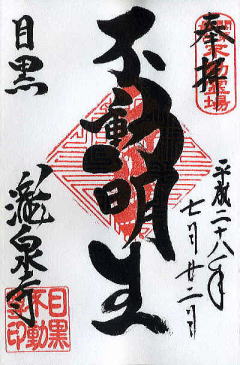 奉拝
平成二十八年
七月廿二日
不動明王
目黒
瀧泉寺
目黒
不動